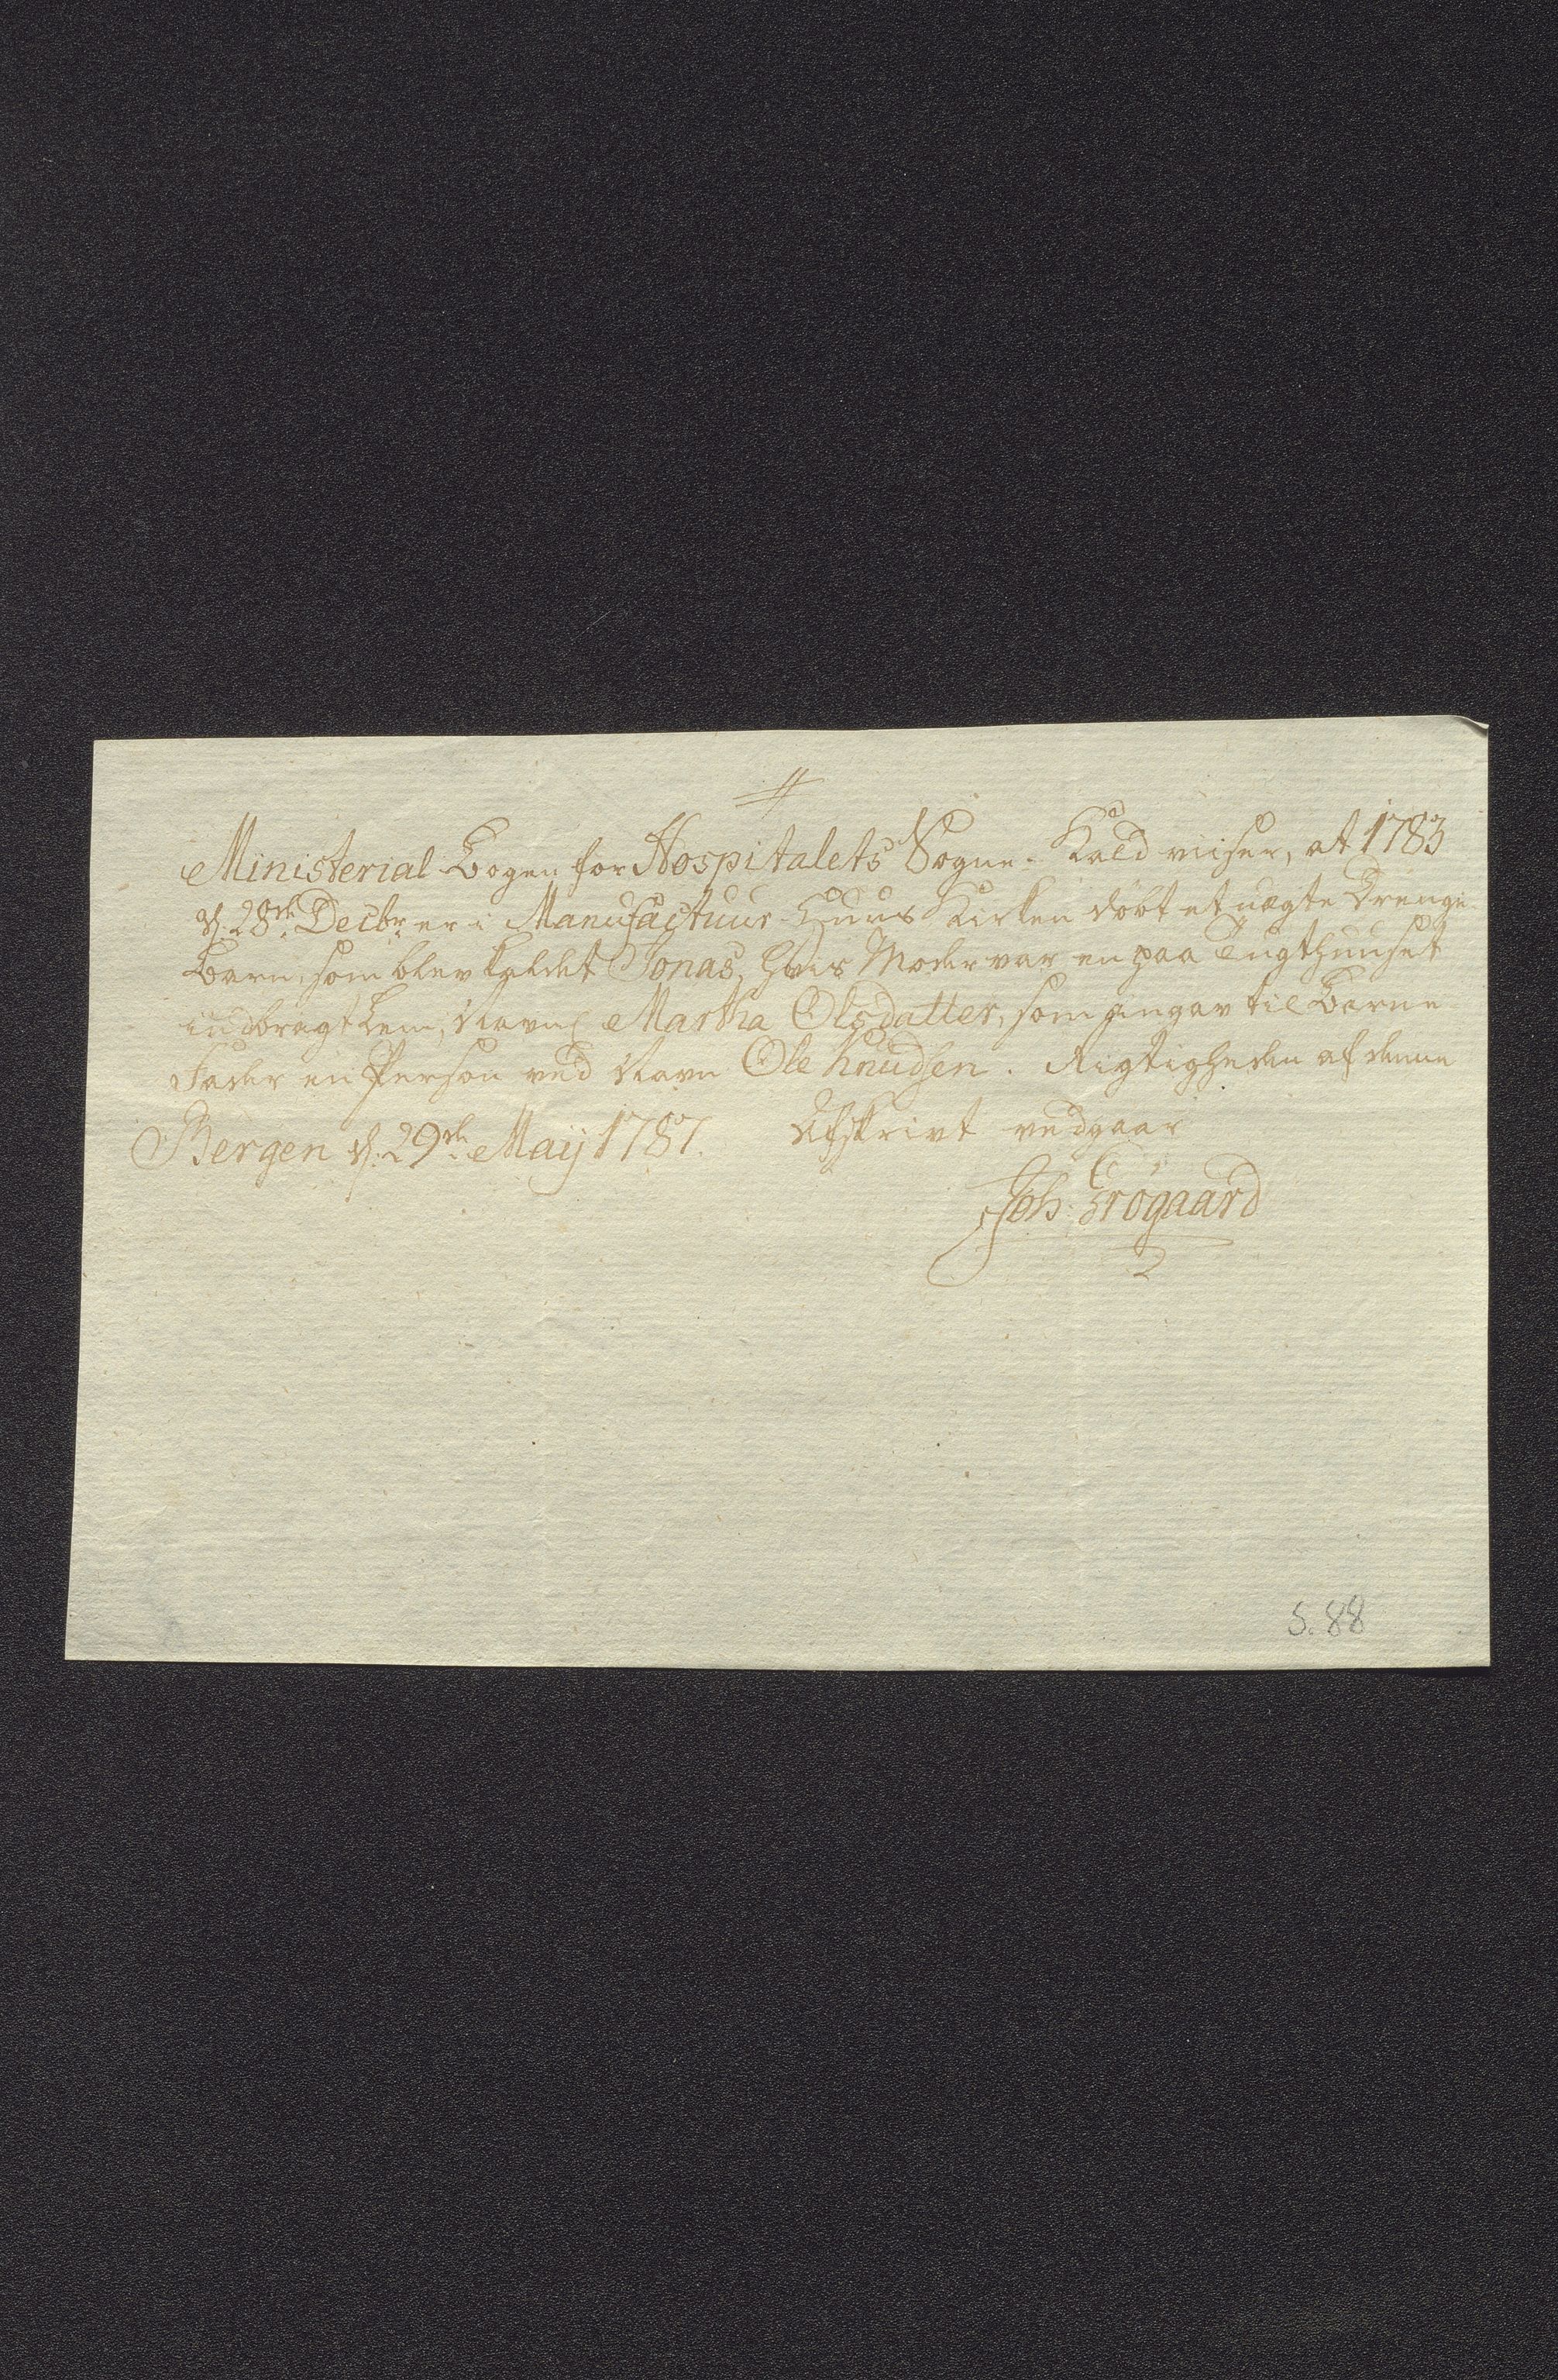 Ministerial-Bogen for Hospitalets Sogne-Kald viiser, at 1783
d: 28de Decbr: er i Manufactuur-Huus Kirken døbt et uægte Drenge-
Barn, som blev kaldet Jonas, hvis Moder var en paa Tugthuuset
indbragt Lem, Navnl Martha Olsdatter, som angav til Barne-
Fader en Person ved Navn Ole Knudsen. Rigtigheden af denne
Afskrivt vedgaar
Bergen d: 29de Maij 1787.
Joh: Grøgaard
S. 88